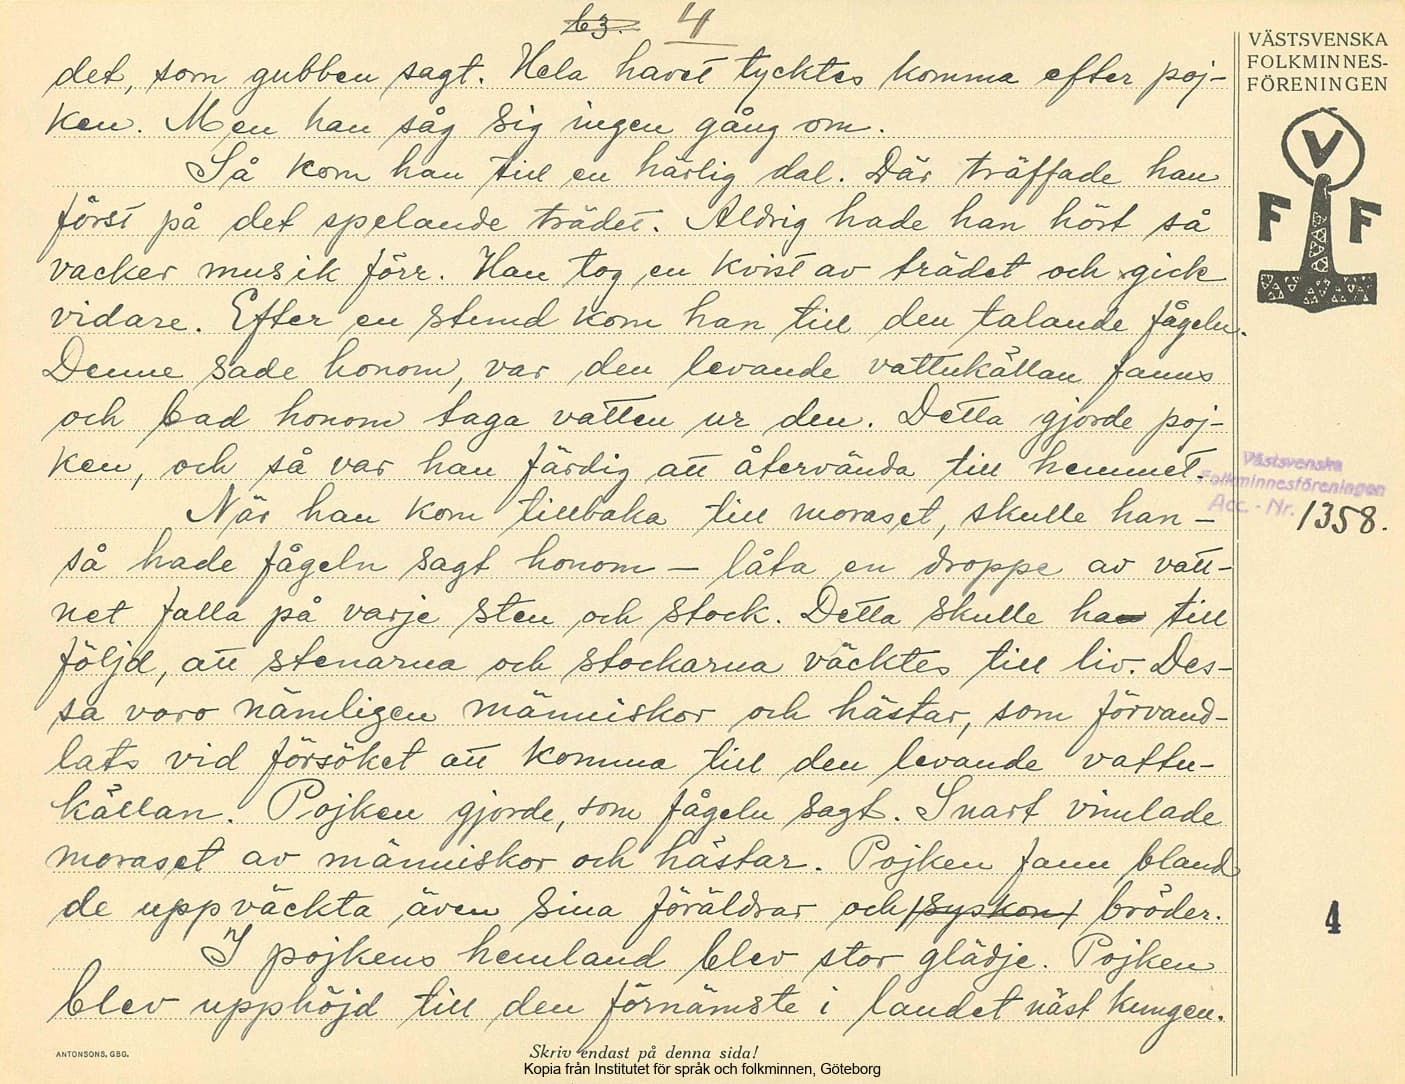 63. 4
det, som gubben sagt. Hela havet tycktes komma efter poj-
ken. Men han såg sig ingen gång om.
Så kom han till en härlig dal. Där träffade han
först på det spelande trädet. Aldrig hade han hört så
vacker musik förr. Han tog en kvist av trädet och gick
vidare. Efter en stund kom han till den talande fågeln.
Denne sade honom, var den levande vattukällan fanns
och bad honom taga vatten ur den. Detta gjorde poj-
ken, och så var han färdig att återvända till hemmet.
När han kom tillbaka till moraset, skulle han –
så hade fågeln sagt honom – låta en droppe av vatt-
net falla på varje sten och stock. Detta skulle ha till
följd, att stenarna och stockarna väcktes till liv. Des-
sa voro nämligen människor och hästar, som förvand-
lats vid försöket att komma till den levande vattu-
källan. Pojken gjorde, som fågeln sagt. Snart vimlade
moraset av människor och hästar. Pojken fann bland
de uppväckta även sina föräldrar och (syskon) bröder.
I pojkens hemland blev stor glädje. Pojken
blev upphöjd till den förnämste i landet näst kungen.
VÄSTSVENSKA
FOLKMINNES-
FÖRENINGEN
V
F F
Västsvenska
Folkminnesföreningen
Acc. - Nr. 1358.
4
ANTONSONS. GBG.
Skriv endast på denna sida!
Kopia från Institutet för språk och folkminnen, Göteborg